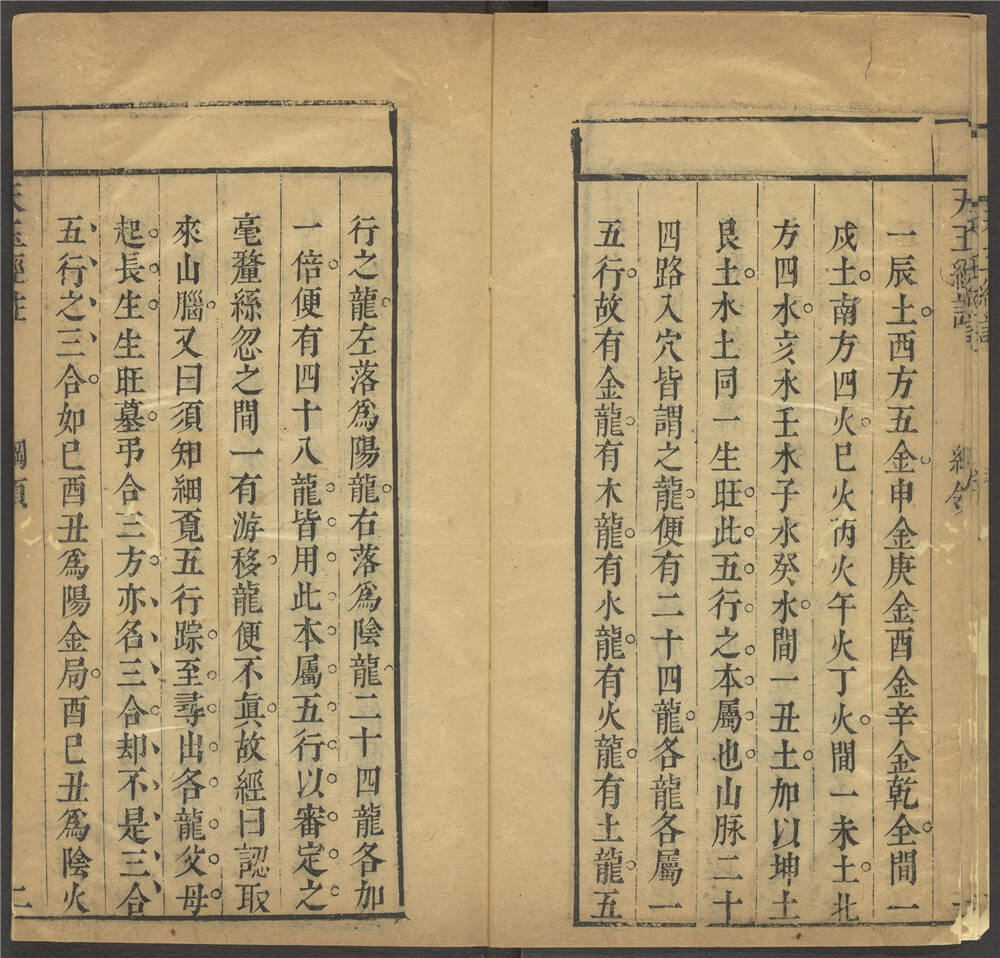 一辰土西方五金申金庚金酉金辛金乾全間一
戍土南方四火巳火丙火午火丁火間一未土北
方四水亥水壬水子水癸水間一丑土加以坤土
艮土水土同一生旺此五行之本屬也山脉二十
四路入穴皆謂之龍便有二十四龍各龍各屬一
五行故有金龍有木龍有水龍有火龍有土龍五
行之龍左落爲陽龍右落爲陰龍二十四龍各加
一倍便有四十八龍皆用此本屬五行以審定之
毫釐絲忽之間一有游移龍便不眞故經曰認取
來山腦又曰須知細覔五行踪至尋出各龍父母
起長生生旺墓弔合三方亦名三合却不是三合
五行之三合如巳酉丑爲陽金局酉巳丑爲陰火
天玉經註 綱領 二